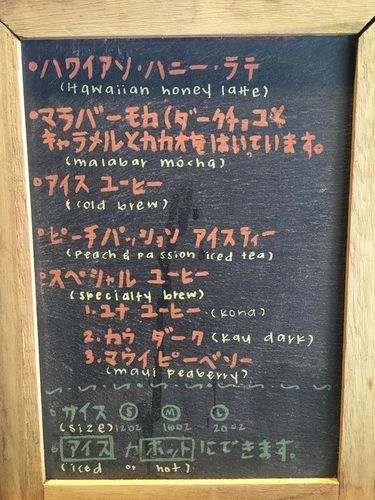 •ハワイアソ・ハニー・ラテ
(Hawaiian honey latte)
•マラバーモカ(ダークチョコと
キャラメルとカカオをはいています。
(malabar mocha)
•アイス ユーヒー
(cold brew)
•ピーチパッション アイスティー
(peach & passion iced tea)
•スペシャル ユーヒー
(specialty brew)
1.ユナ ユーヒー (kona)
2.カウ ダーク (kau dark)
3.マウイピーベソー
(maui peaberry)
•サイス S M L
(size) 12oz 16oz 20oz
•アイス カ ホット にできます。
(iced or hot)